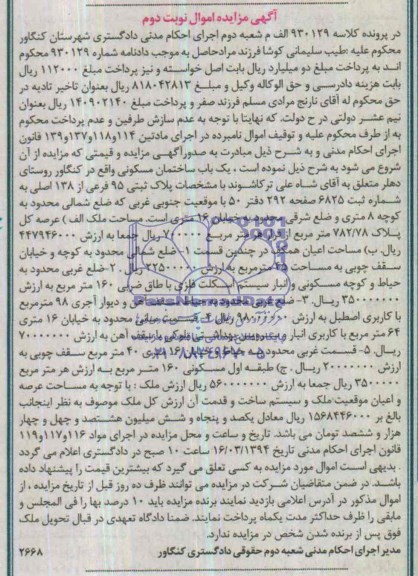 آگهی مزایده اموال نوبت دوم
در پرونده کلاسه ۹۳۰۱۲۹ الف م شعبه دوم اجرای احکام مدنی دادگستری شهرستان کنگاور
محکوم علیه طیب سلیمانی کوشا فرزند مراد حاصل به موجب دادنامه شماره ۹۳۰۱۲۹ محکوم
اند به پرداخت مبلغ دو میلیارد ریال بابت اصل خواسته و نیز پرداخت مبلغ ۱۱۲۰۰۰ ریال
بابت هزینه دادرسی و حق الوکاله وکیل و مبلغ ۸۱۸۰۴۲۸۱۳ ریال بعنوان تاخیر تادیه در
حق محکوم له آقای نارنج مرادی مسلم فرزند صفر و پرداخت مبلغ ۱۴۰۹۰۲۱۴۰ ریال بعنوان
نیم عشر دولتی در ح دولت. که نهایتا با توجه به عدم سازش طرفین و عدم پرداخت محکوم
به از طرف محکوم علیه و توقیف اموال نامبرده در اجرای مادتین ۱۱۴و۱۱۸و۱۳۷و۱۳۹ قانون
اجرای احکام مدنی و به شرح ذیل مبادرت به صدور آگهی مزایده و قیمتی که مزایده از آن
شروع می شود به شرح ذیل نموده است ، یک باب ساختمان مسکونی واقع در کنگاور روستای
دهلر متعلق به آقای شاه علی ترکاشوند با مشخصات پلاک ثبتی ۹۵ فرعی از ۱۳۸ اصلی به
شماره ثبت ۶۸۲۵ صفحه ۲۹۲ دفتر ۵۰ با موقعیت جنوبی غربی که ضلع شمالی محدود به
کوچه ۸ متری و ضلع شرقی محدود به خیابان ۱۶ متری است. مساحت ملک الف ) عرصه کل
پلاک ۷۸۲/۷۸ متر مربع از قرار هر متر مربع ریال جمعا به ارزش ۴۴۷۹۴۶۰۰۰
ریال. ب) مساحت اعیان همکف در چندین قسمت ۱- ضلع شمالی محدود به کوچه و خیابان
سقف چوبی به مساحت متر مربع به ارزش ریال. ۲- ضلع غربی محدود به
حیاط و کوچه مسکونی و انبار سیستم اسکلت فلزی با طاق ضربی ۱۶۰ متر مربع به ارزش
۳۵۰۰۰۰۰۰۰ ریال. ۳- ضلع غربی محدود به حیاط و دیوار آجری ۹۸ مترمربع
با کاربری اصطبل به ارزش ریال. ۴- قسمت میانی محدود به خیابان ۱۶ متری
۶۴ متر مربع با کاربری انبار و سقف آهن به ارزش ۷۰۰۰۰۰۰۰
ریال. ۵- قسمت غربی محدود به ۴۰ متر مربع سقف چوبی به
ارزش ۲۰۰۰۰۰۰۰ ریال. ج) طبقه اول مسکونی ۱۶۰ متر مربع به ارزش هر متر مربع
۳۵۰۰۰۰۰ ریال جمعا به ارزش ۵۶۰۰۰۰۰۰۰ ریال ارزش ملک : با توجه به مساحت عرصه
و اعیان موقعیت ملک و سیستم ساخت و قدمت آن ارزش کل ملک موصوف به نظر اینجانب
بالغ بر ۱۵۶۸۴۴۶۰۰۰ ریال معادل یکصد و پنجاه و شش میلیون هشتصد و چهل و چهار
هزار و ششصد تومان می باشد. تاریخ و ساعت و محل مزایده در اجرای مواد ۱۱۶و۱۱۷و۱۱۹
قانون اجرای احکام مدنی تاریخ ۱۶/۰۳/۱۳۹۴ ساعت ۱۰ صبح در دادگستری اعلام می گردد
. بدیهی است اموال مورد مزایده به کسی تعلق می گیرد که بیشترین قیمت را پیشنهاد داده
باشد. در ضمن متقاضیان شرکت در مزایده می توانند ظرف ده روز قبل از تاریخ مزایده ، از
اموال مذکور در آدرس اعلامی بازدید نمایند برنده مزایده باید ۱۰ درصد بها را فی المجلس و
مابقی را ظرف حداکثر مدت یکماه پرداخت نمایند. ضمنا دادگاه تعهدی در قبال تحویل ملک
فوق پس از برنده شدن شخص در مزایده ندارد.
مدیر اجرای احکام مدنی شعبه دوم حقوقی دادگستری کنگاور ۲۶۶۸